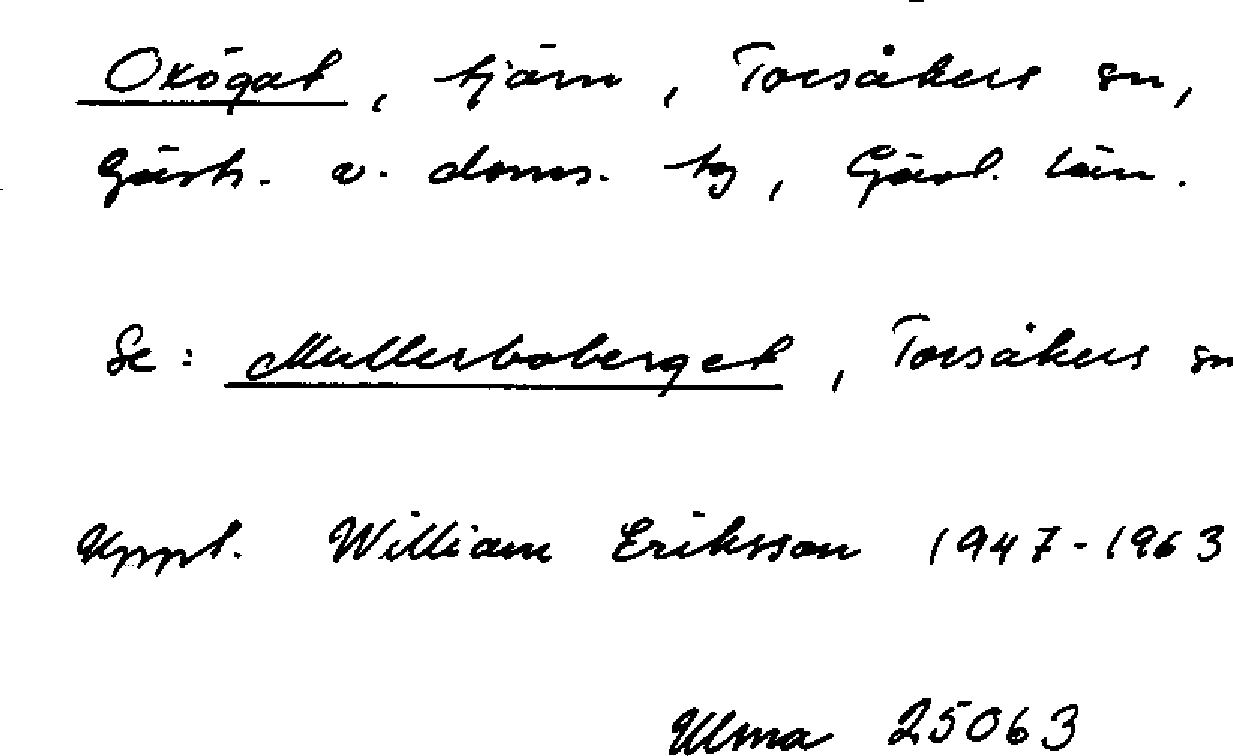 Oxögat, tjärn, Torsåkers sn,
Gästr. v. doms. tg, Gävl. län.
Se: Mullerboberget, Torsåkers sn
Uppt. William Eriksson 1947-1963
Ulma 25063